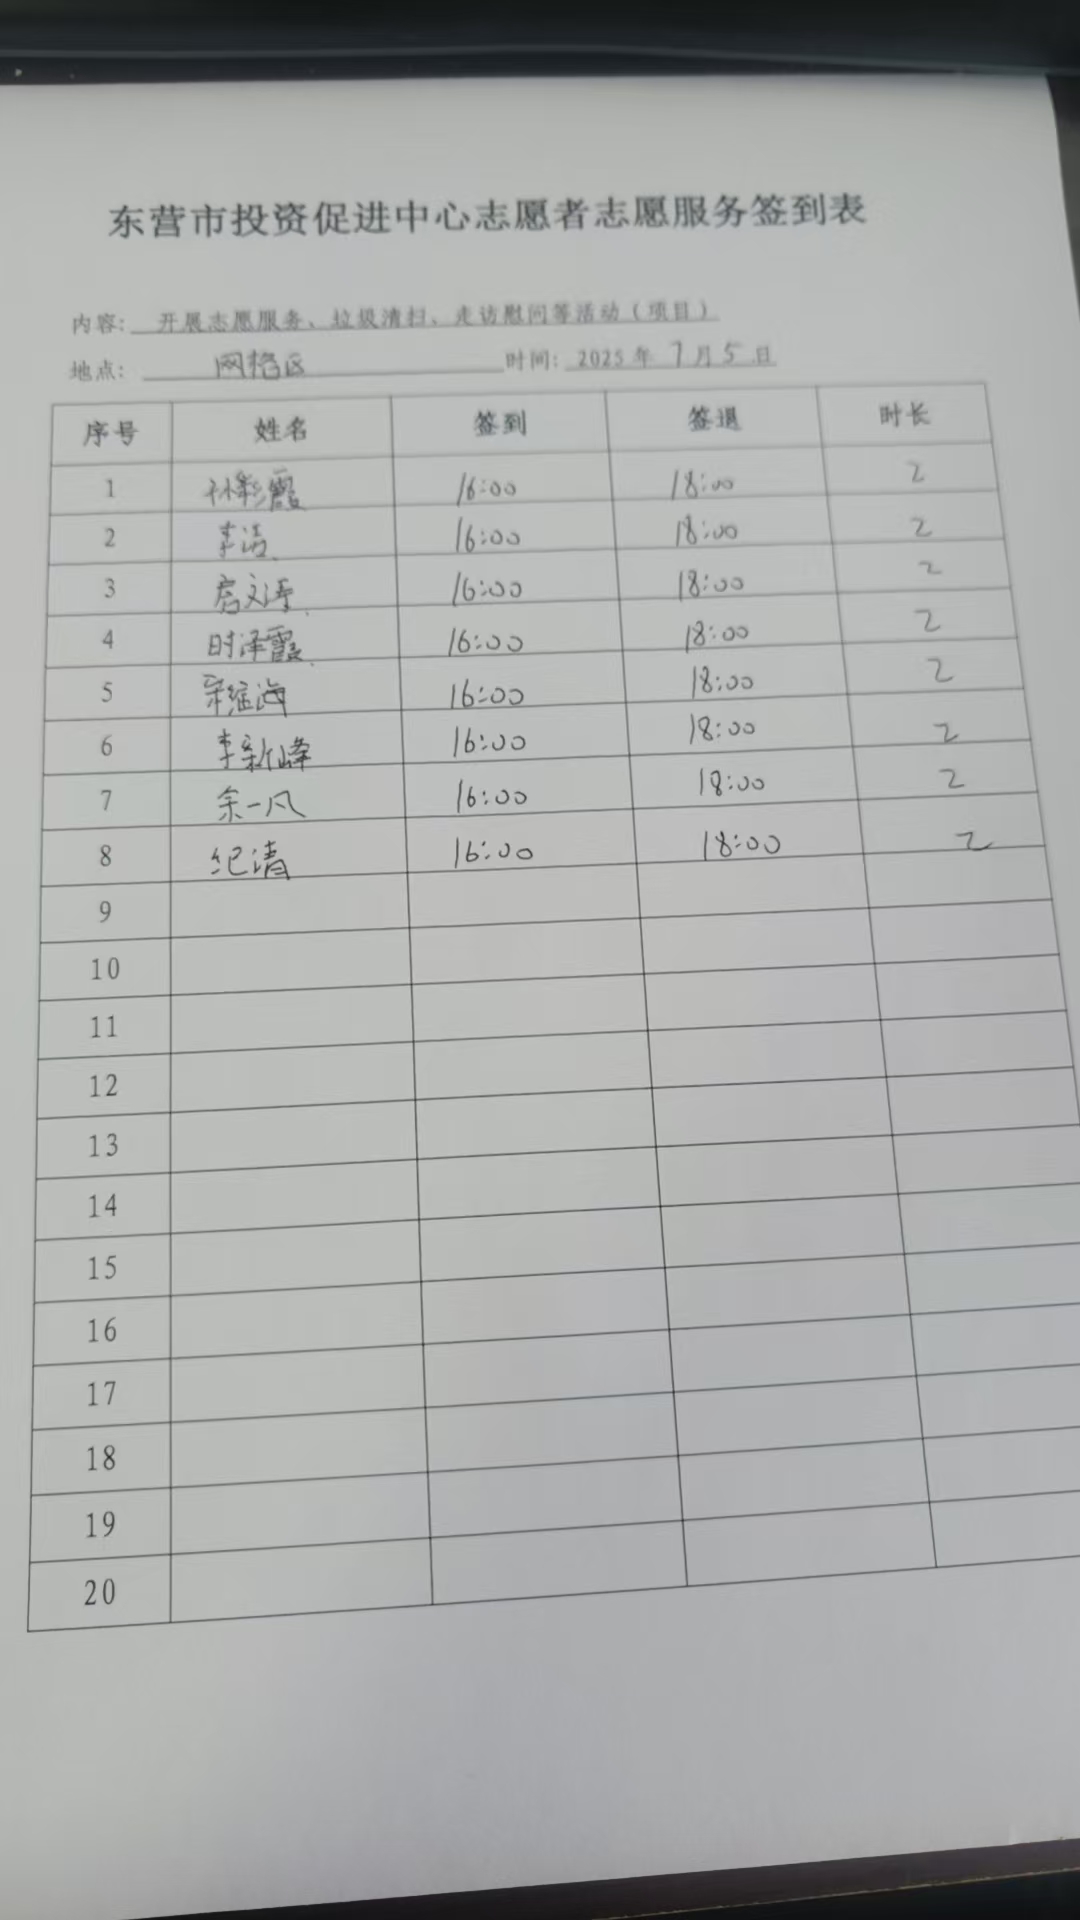 东营市投资促进中心志愿者志愿服务签到表
内容: 开展志愿服务、垃圾清扫、走访慰问等活动（项目）
地点: 网格区 时间: 2025 年 7 月 5 日
序号 姓名 签到 签退 时长
1 孙彩霞 16:00 18:00 2
2 李洁 16:00 18:00 2
3 房文涛 16:00 18:00 2
4 时泽霞 16:00 18:00 2
5 宋维海 16:00 18:00 2
6 李新峰 16:00 18:00 2
7 余一凡 16:00 18:00 2
8 纪清 16:00 18:00 2
9
10
11
12
13
14
15
16
17
18
19
20